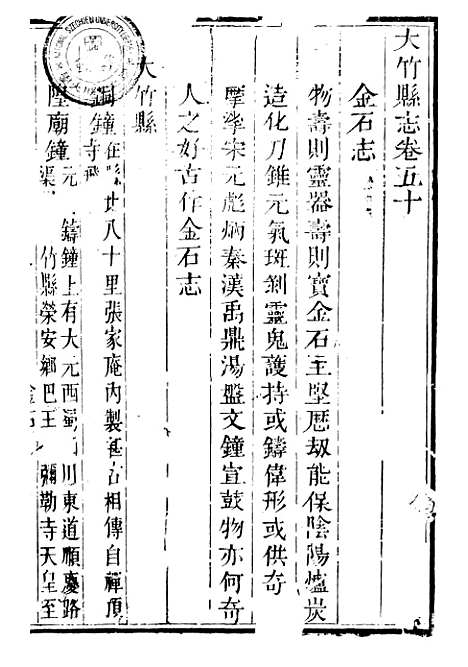 大竹縣志卷五十
金石志
物壽則靈器壽則寶金石主堅歷劫能保陰陽爐炭
造化刀錐元氣斑剝靈鬼護持或鑄偉形或供奇
摩挲宋元彪炳秦漢禹鼎湯盤文鐘宣鼓物亦何奇
人之好古作金石志
大竹縣
銅鐘在縣北八十里張家庵內製甚古相傳自禪頂
寺飛
墜廟鐘元 鑄鐘上有大元西蜀 川東道順慶路
渠 竹縣榮安鄉巴王 彌勒寺天皇至